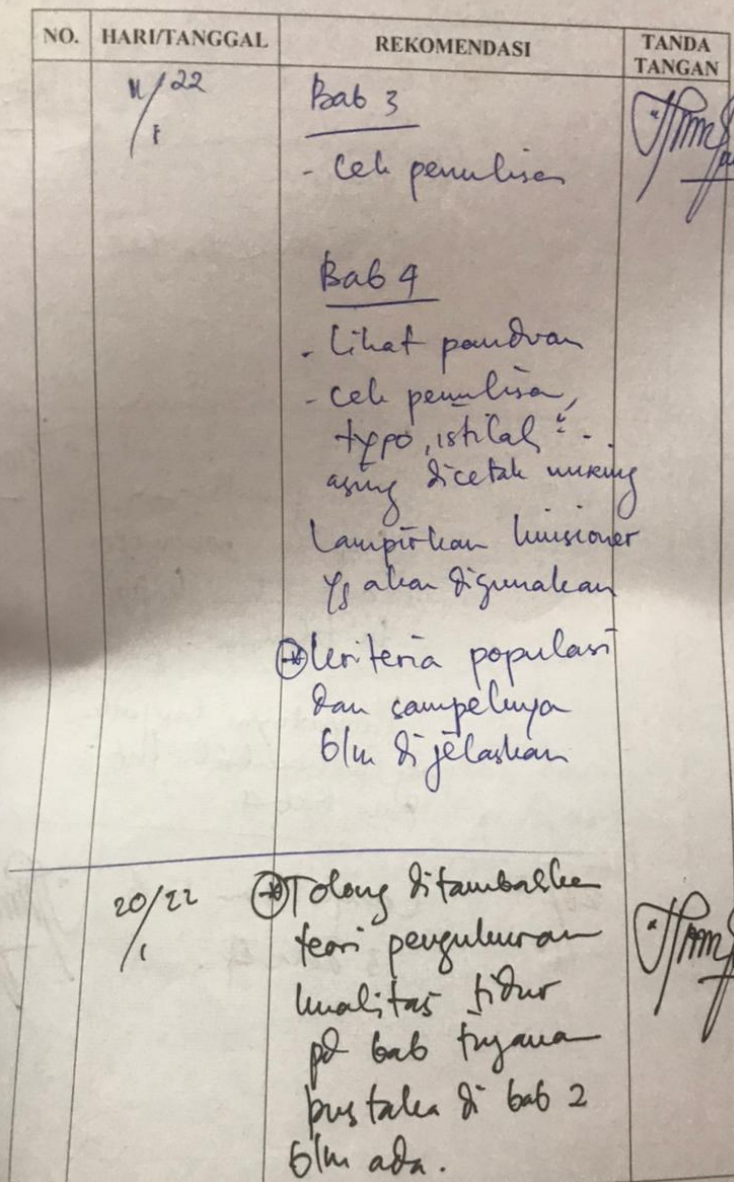 NO. HARI/TANGGAL REKOMENDASI TANDA TANGAN
11/22 1
Bab 3
- Cek penulisan
Bab 4
- Lihat panduan
- cek penulisan,
typo, istilah
asing dicetak miring
Lampirkan kuisioner
yg akan digunakan
kriteria populasi
dan sampelnya
blm dijelaskan
20/22 1
Tolong ditambahkan
teori pengukuran
kualitas tidur
pd bab tinjauan
pustaka di bab 2
blm ada.